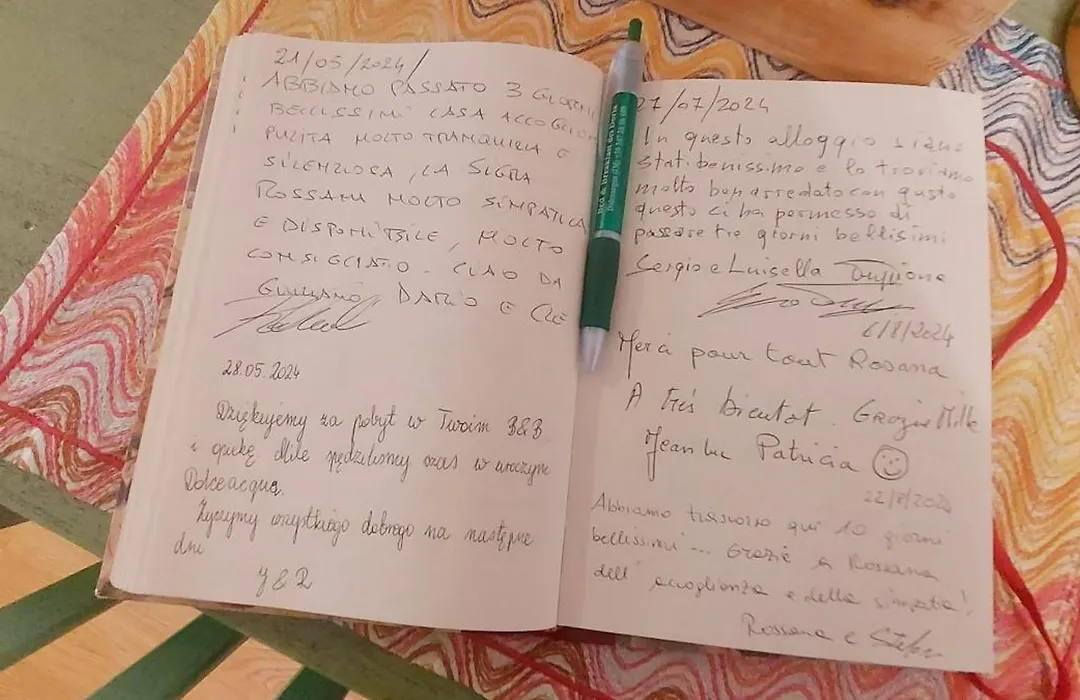 21/05/2024/
ABBIAMO PASSATO 3 GIORNI
BELLISSIMI CASA
PULITA MOLTO TRANQUILLA E
SILENZIOSA, LA SIGRA
ROSSANA MOLTO SIMPATICA
E DISPONIBILE, MOLTO
CONSIGLIATO. CIAO DA
GIULIANO DARIO E CLE
28.05.2024
Dziękujemy za pobyt w Twoim B&B
i opiekę. Mile spędziliśmy czas w uroczym
Dolceacqua.
Życzymy wszystkiego dobrego na następne
dni
J & R
Bed & breakfast dei Doria
Dolceacqua (IM)
27/07/2024
In questo alloggio siamo
stati benissimo e lo troviamo
molto ben arredato con gusto
questo ci ha permesso di
passare tre giorni bellisimi
Sergio e Luisella
6/8/2024
Merci pour tout Rosana
A très bientot. Grazie Mille
Jean Luc Patricia
22/8/2024
Abbiamo trascorso qui 10 giorni
bellissimi ... Grazie a Rossana
dell'accoglienza e della simpatia!
Rossana e